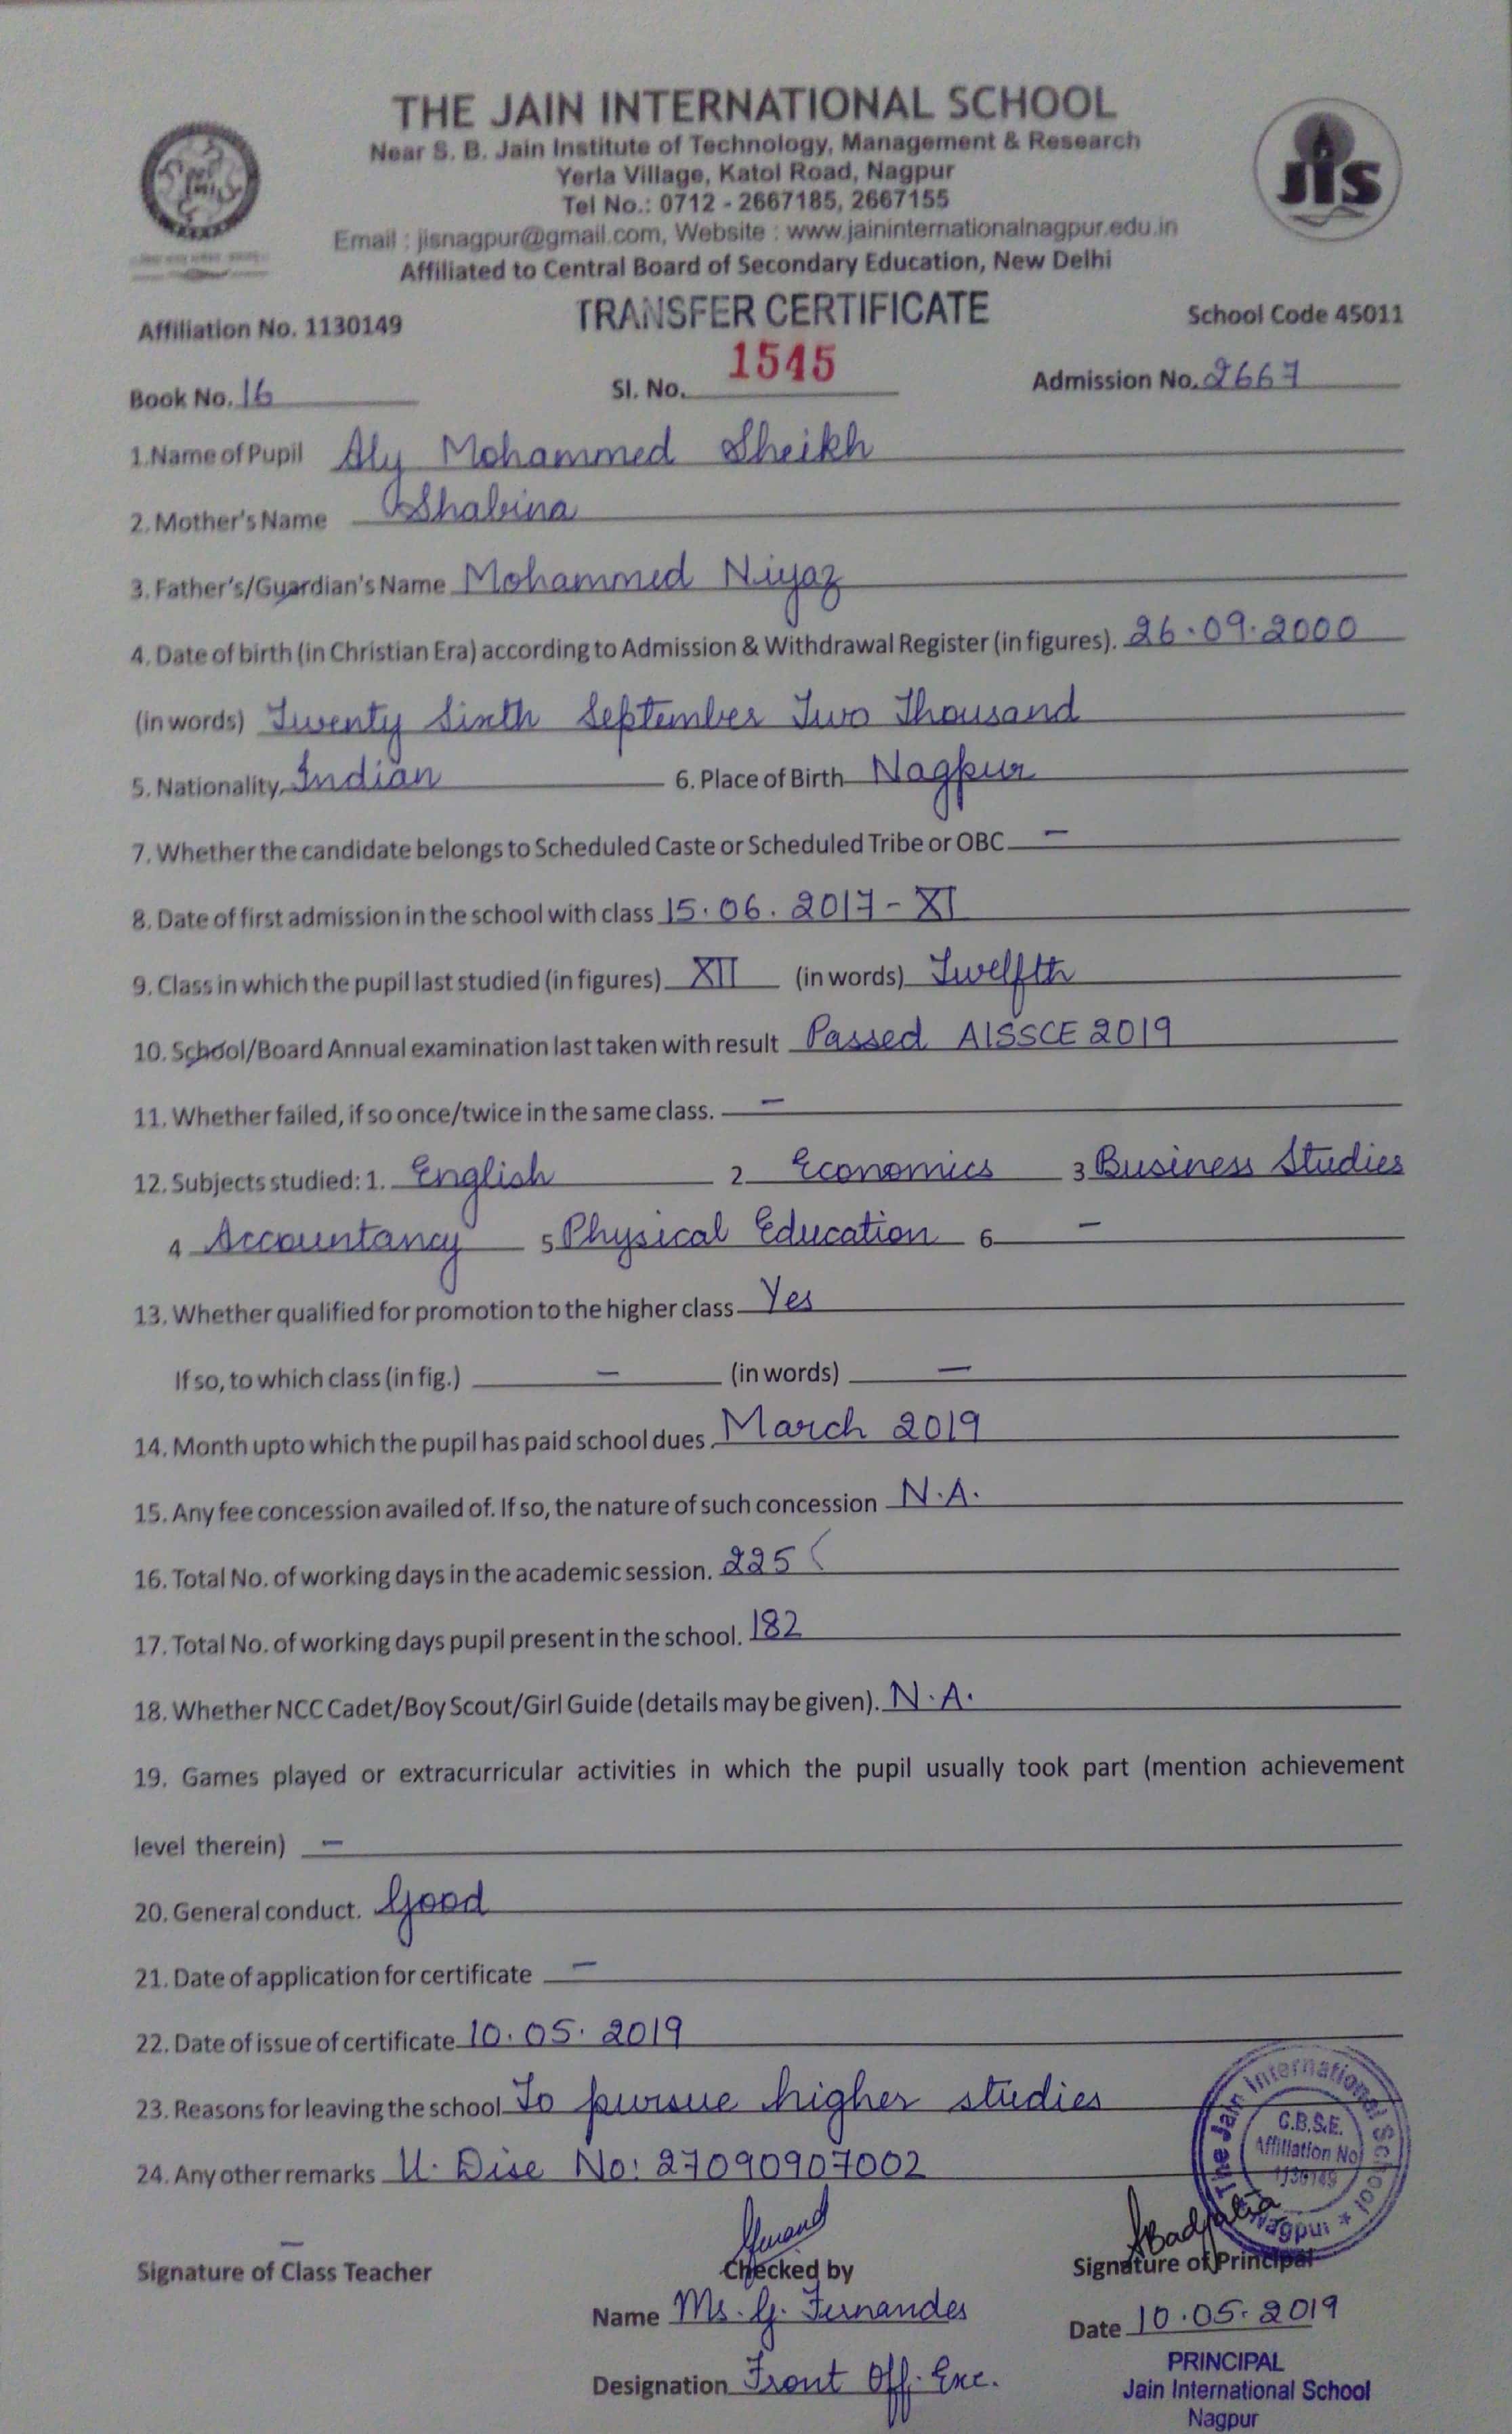 THE JAIN INTERNATIONAL SCHOOL
Near S. B. Jain Institute of Technology, Management & Research
Yerla Village, Katol Road, Nagpur
Tel No.: 0712 - 2667185, 2667155
Email : jisnagpur@gmail.com, Website : www.jaininternationalnagpur.edu.in
Affiliated to Central Board of Secondary Education, New Delhi
jIS
TRANSFER CERTIFICATE
Affiliation No. 1130149 School Code 45011
Book No. 16 Sl. No. 1545 Admission No. 2667
1.Name of Pupil Aly Mohammed Sheikh
2. Mother's Name Shabina
3. Father's/Guardian's Name Mohammed Niyaz
4. Date of birth (in Christian Era) according to Admission & Withdrawal Register (in figures). 26.09.2000
(in words) Twenty Sixth September Two Thousand
5. Nationality. Indian 6. Place of Birth Nagpur
7. Whether the candidate belongs to Scheduled Caste or Scheduled Tribe or OBC —
8. Date of first admission in the school with class 15.06.2017 - XI
9. Class in which the pupil last studied (in figures) XII (in words) Twelfth
10. School/Board Annual examination last taken with result Passed AISSCE 2019
11. Whether failed, if so once/twice in the same class. —
12. Subjects studied: 1. English 2 Economics 3 Business Studies
4 Accountancy 5 Physical Education 6 —
13. Whether qualified for promotion to the higher class Yes
If so, to which class (in fig.) — (in words) —
14. Month upto which the pupil has paid school dues. March 2019
15. Any fee concession availed of. If so, the nature of such concession N.A.
16. Total No. of working days in the academic session. 225
17. Total No. of working days pupil present in the school. 182
18. Whether NCC Cadet/Boy Scout/Girl Guide (details may be given). N.A.
19. Games played or extracurricular activities in which the pupil usually took part (mention achievement
level therein) —
20. General conduct. Good
21. Date of application for certificate —
22. Date of issue of certificate 10.05.2019
23. Reasons for leaving the school To pursue higher studies
24. Any other remarks U. Dise No: 27090907002
The Jain International School * Nagpur *
C.B.S.E.
Affiliation No
1130149
—
Signature of Class Teacher Checked by Signature of Principal
Name Ms. G. Fernandes Date 10.05.2019
Designation Front Off. Exe.
PRINCIPAL
Jain International School
Nagpur